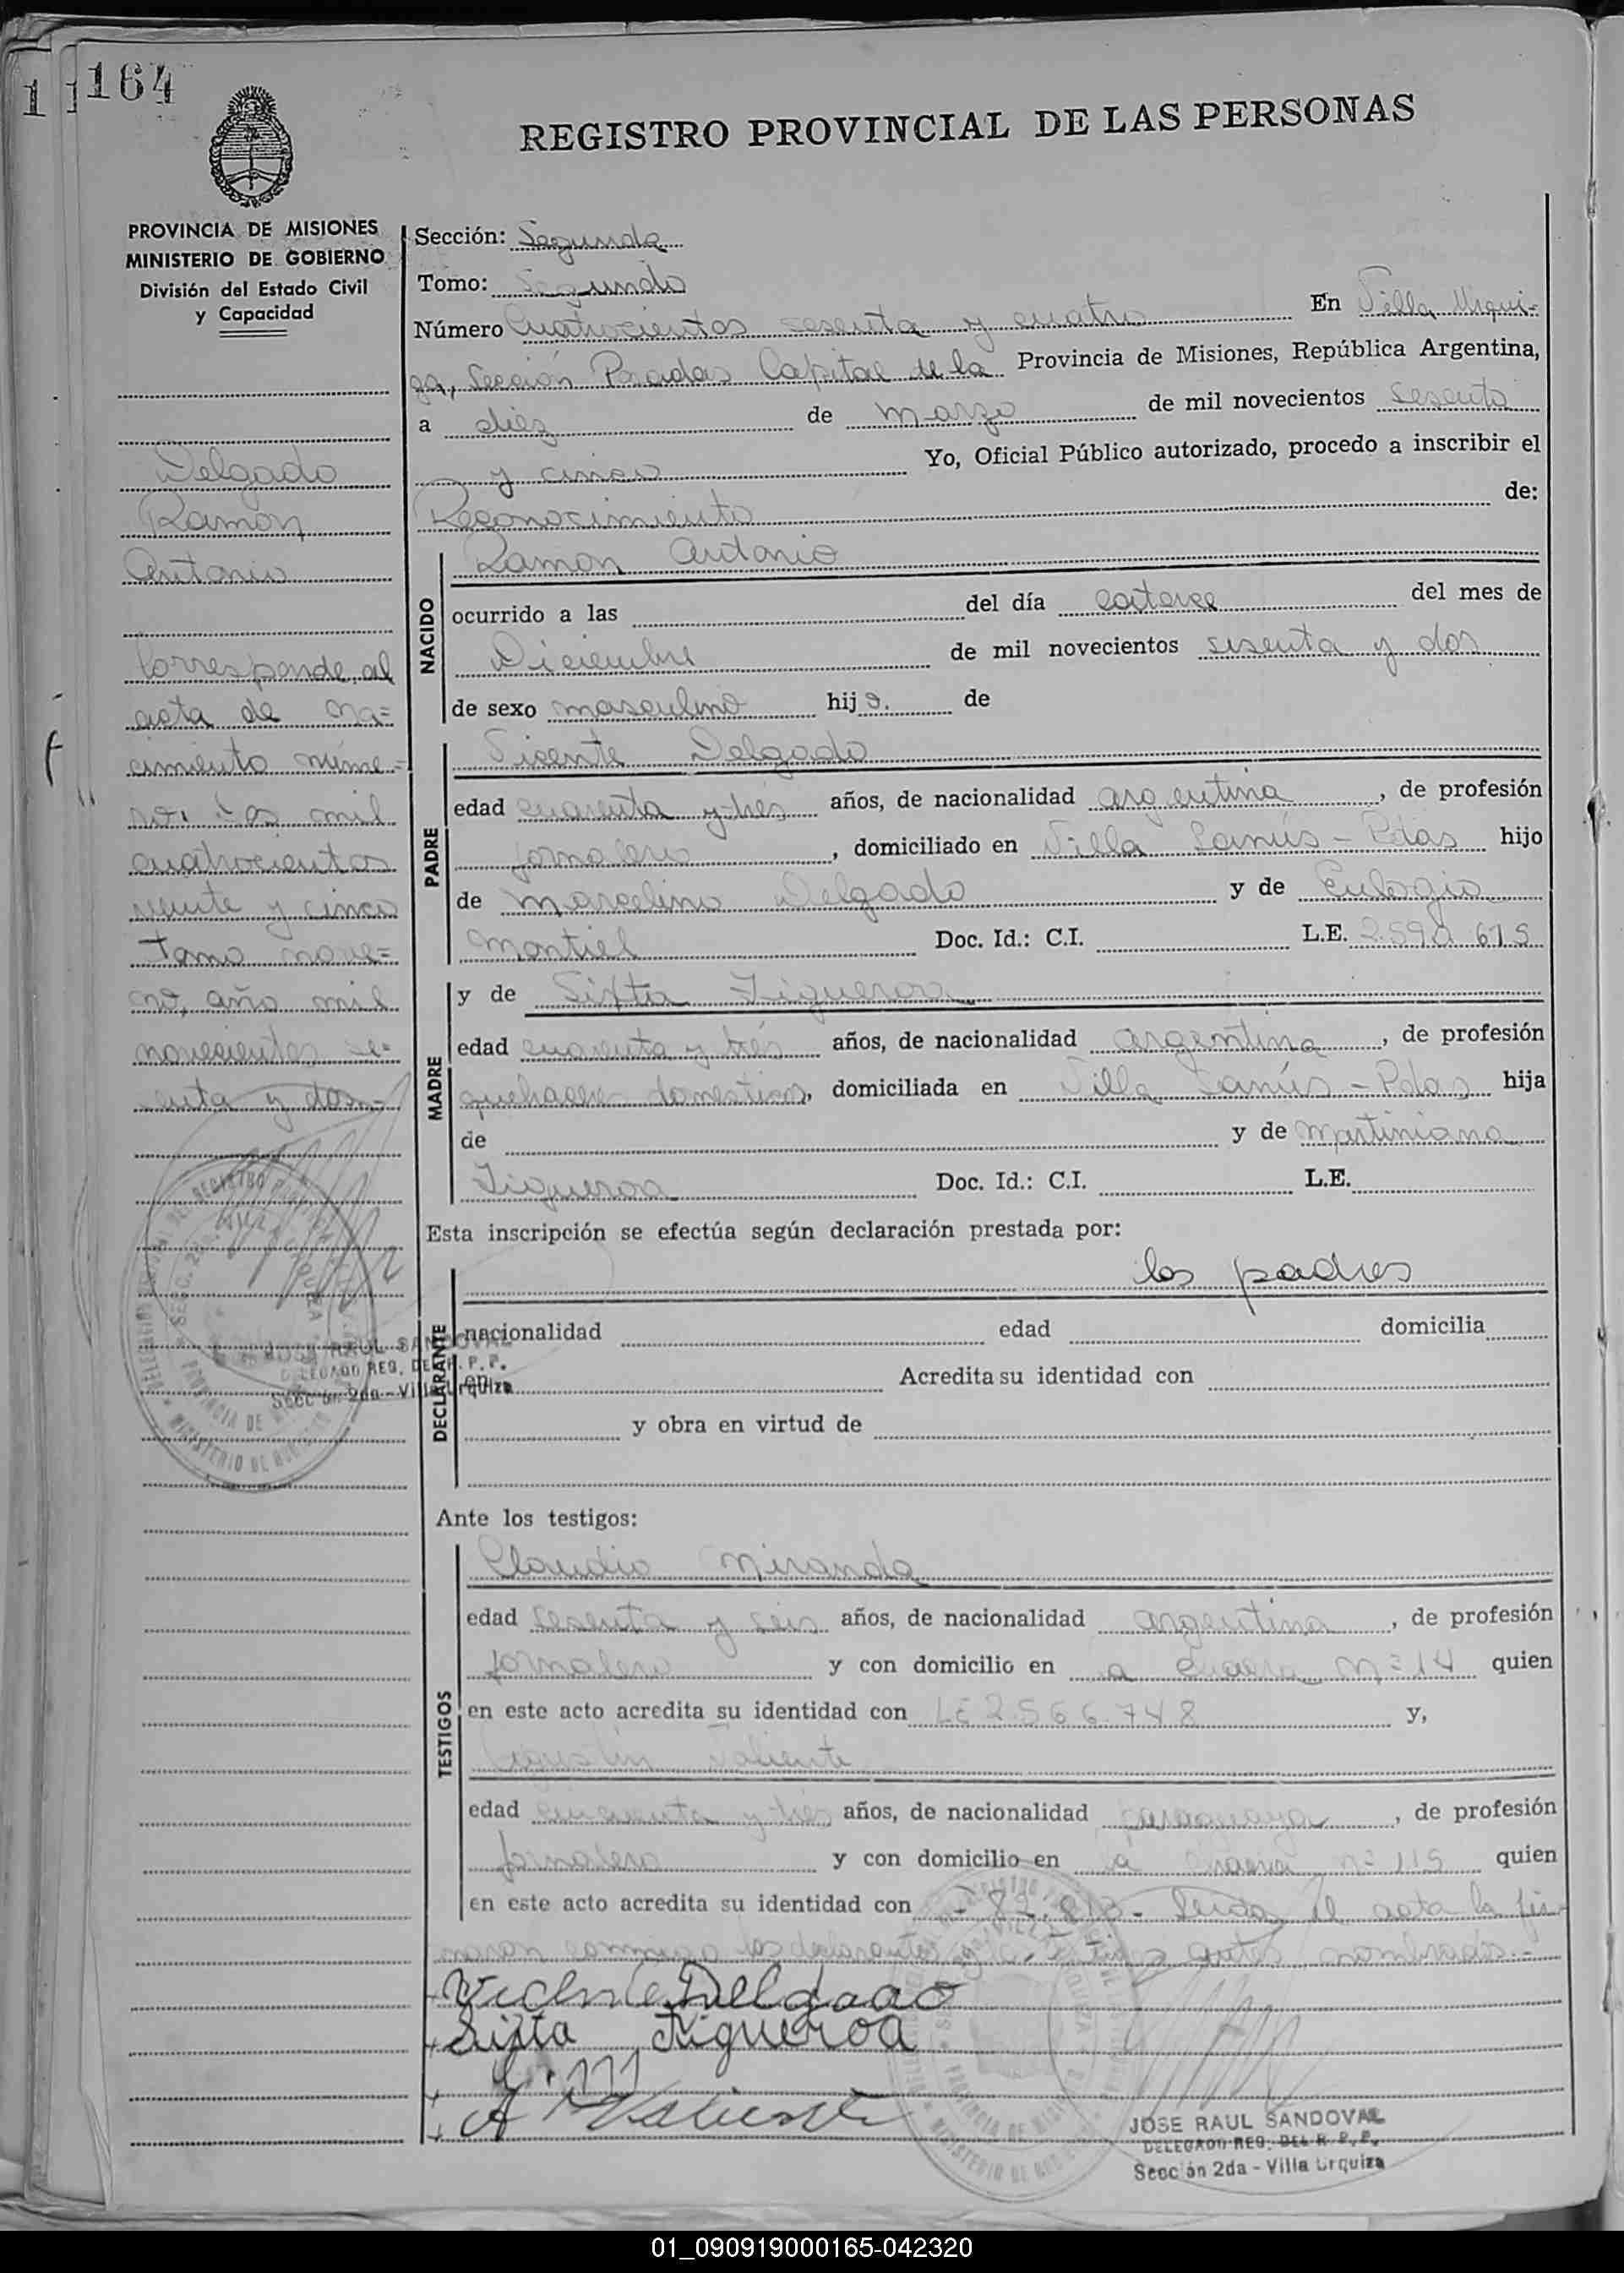 164
REGISTRO PROVINCIAL DE LAS PERSONAS
PROVINCIA DE MISIONES
MINISTERIO DE GOBIERNO
División del Estado Civil
y Capacidad
Delgado
Ramón
Antonio
Corresponde al
acta de na=
cimiento núme=
ro dos mil
cuatrocientos
veinte y cinco
tomo nove=
no, año mil
novecientos se=
senta y dos.-
JOSE RAUL SANDOVAL
DELEGADO REG. DEL R. P. P.
Sección 2da - Villa Urquiza
Sección: Segunda
Tomo: Segundo
Número Cuatrocientos sesenta y cuatro En Villa Urqui-
za, Sección Posadas Capital de la Provincia de Misiones, República Argentina,
a diez de marzo de mil novecientos sesenta
y cinco Yo, Oficial Público autorizado, procedo a inscribir el
Reconocimiento de:
NACIDO
Ramon Antonio
ocurrido a las del día catorce del mes de
Diciembre de mil novecientos sesenta y dos
de sexo masculino hijo. de
PADRE
Vicente Delgado
edad cuarenta y tres años, de nacionalidad argentina, de profesión
jornalero, domiciliado en Villa Lanús - Pdas hijo
de Marcelino Delgado y de Eulogia
Montiel Doc. Id.: C.I. L.E. 2.590.615
MADRE
y de Sixta Figueroa
edad cuarenta y trés años, de nacionalidad argentina, de profesión
quehacer domesticos, domiciliada en Villa Lanús - Pdas hija
de y de Martiniana
Figueroa Doc. Id.: C.I. L.E.
Esta inscripción se efectúa según declaración prestada por:
DECLARANTE
los padres
nacionalidad edad domicilia
en Acredita su identidad con
y obra en virtud de
Ante los testigos:
TESTIGOS
Claudio Miranda
edad sesenta y seis años, de nacionalidad argentina, de profesión
jornalero y con domicilio en a Chacra Nº 14 quien
en este acto acredita su identidad con LE 2.566.748 y,
Agustin Valiente
edad cincuenta y tres años, de nacionalidad paraguaya, de profesión
jornalero y con domicilio en la Chacra nº 115 quien
en este acto acredita su identidad con Leida el acta la fir-
maron conmigo los declarantes antes nombrados.-
Vicente Delgado
Sixta Figueroa
A Valiente
JOSE RAUL SANDOVAL
DELEGADO REG. DEL R. P. P.
Sección 2da - Villa Urquiza
01_090919000165-042320